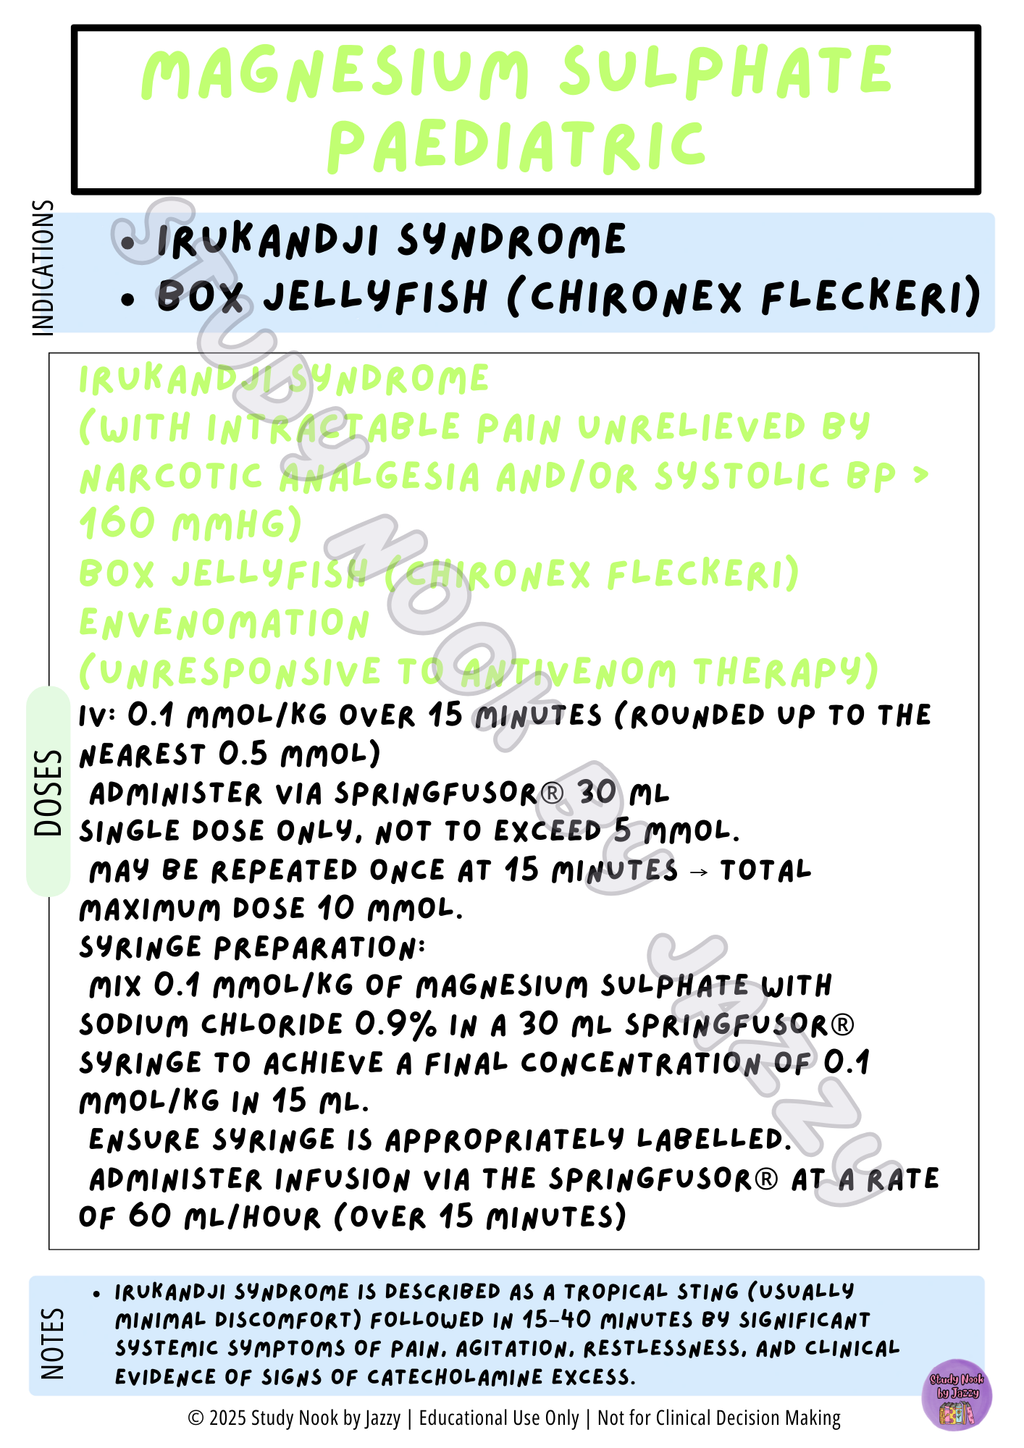 MAGNESIUM SULPHATE
PAEDIATRIC
INDICATIONS
• IRUKANDJI SYNDROME
• BOX JELLYFISH (CHIRONEX FLECKERI)
IRUKANDJI SYNDROME
(WITH INTRACTABLE PAIN UNRELIEVED BY
NARCOTIC ANALGESIA AND/OR SYSTOLIC BP >
160 MMHG)
BOX JELLYFISH (CHIRONEX FLECKERI)
ENVENOMATION
(UNRESPONSIVE TO ANTIVENOM THERAPY)
DOSES
IV: 0.1 MMOL/KG OVER 15 MINUTES (ROUNDED UP TO THE
NEAREST 0.5 MMOL)
ADMINISTER VIA SPRINGFUSOR® 30 ML
SINGLE DOSE ONLY, NOT TO EXCEED 5 MMOL.
MAY BE REPEATED ONCE AT 15 MINUTES → TOTAL
MAXIMUM DOSE 10 MMOL.
SYRINGE PREPARATION:
MIX 0.1 MMOL/KG OF MAGNESIUM SULPHATE WITH
SODIUM CHLORIDE 0.9% IN A 30 ML SPRINGFUSOR®
SYRINGE TO ACHIEVE A FINAL CONCENTRATION OF 0.1
MMOL/KG IN 15 ML.
ENSURE SYRINGE IS APPROPRIATELY LABELLED.
ADMINISTER INFUSION VIA THE SPRINGFUSOR® AT A RATE
OF 60 ML/HOUR (OVER 15 MINUTES)
STUDY NOOK BY JAZZY
NOTES
• IRUKANDJI SYNDROME IS DESCRIBED AS A TROPICAL STING (USUALLY
MINIMAL DISCOMFORT) FOLLOWED IN 15-40 MINUTES BY SIGNIFICANT
SYSTEMIC SYMPTOMS OF PAIN, AGITATION, RESTLESSNESS, AND CLINICAL
EVIDENCE OF SIGNS OF CATECHOLAMINE EXCESS.
Study Nook
by Jazzy
© 2025 Study Nook by Jazzy | Educational Use Only | Not for Clinical Decision Making